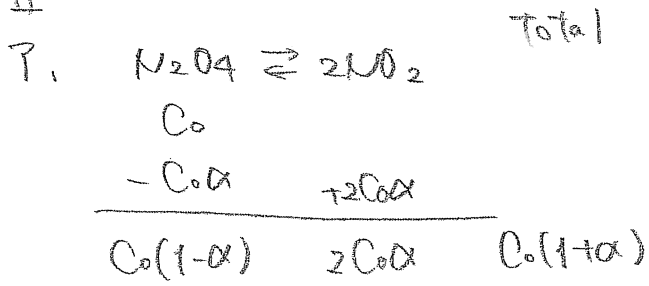 II
Total
ア. N2O4 ⇄ 2NO2
C₀
- C₀α +2C₀α
C₀(1-α) 2C₀α C₀(1+α)